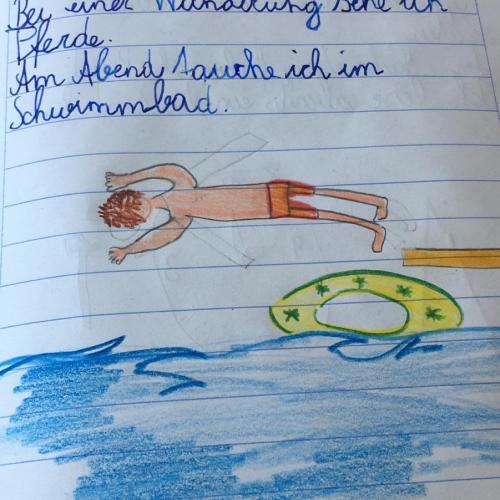 Bei einer Wanderung sehe ich
Pferde.
Am Abend tauche ich im
Schwimmbad.